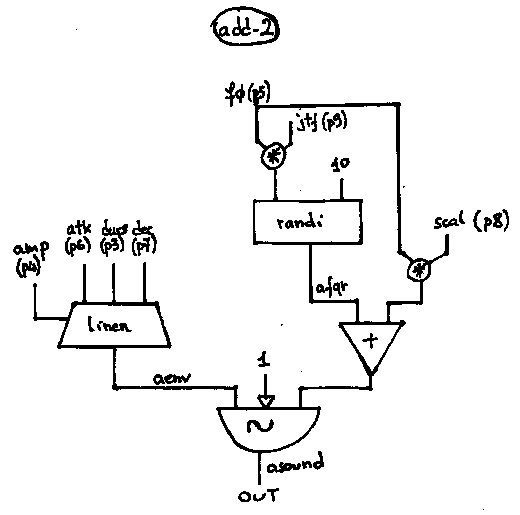 add-2
fφ(p5)
jtf(p9)
10
randi
scal (p8)
amp
(p4)
atk
(p6)
durs
(p3)
dec
(p7)
linen
afqr
+
*
*
1
aenv
~
asound
OUT